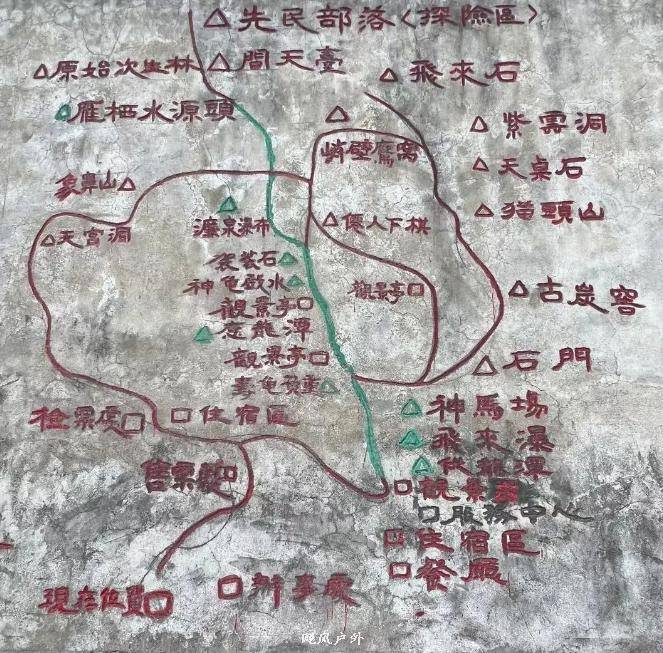 先民部落〈探險區〉
原始次生林
問天臺
飛來石
雁栖水源頭
紫雲洞
峭壁鷹窩
天桌石
象鼻山
猫頭山
濂泉瀑布
僊人下棋
天宮洞
袈裟石
神龟戲水
觀景亭
古炭窑
觀景亭
應龍潭
觀景亭
石門
壽龟負重
神馬場
住宿區
檢票處
飛來瀑
伏龍潭
售票處
觀景
服務中心
住宿區
餐厰
現在位置
辦事處
飓风户外